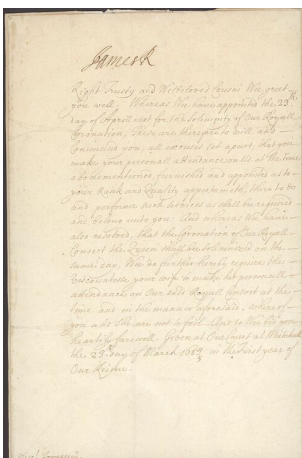 James R
Right Trusty and Welbeloved Cousin We greet
you well; Whereas We have appointed the 23th
day of Aprill next for the Solemnity of Our Royall
Coronation, These are therefore to will and
Command you, all excuses set apart, that you
make your personall attendance on Us at the time
abovementioned, furnished and appointed as to
your Rank and Quality appertaineth, there to do
and performe such services as shall be required
and belong unto you. And whereas We have
also resolved, that the Coronation of Our Royall
Consort the Queen shall be solemnized on the
same day, Wee do further hereby require the
Viscountesse your wife to make her personall
attendance on Our said Royall Consort at the
time and in the manner aforesaid, whereof
you and She are not to fail. And so We bid you
heartily farewell. Given at Our Court at Whitehall
the 23th day of March 1684/5 in the First year of
Our Reigne.